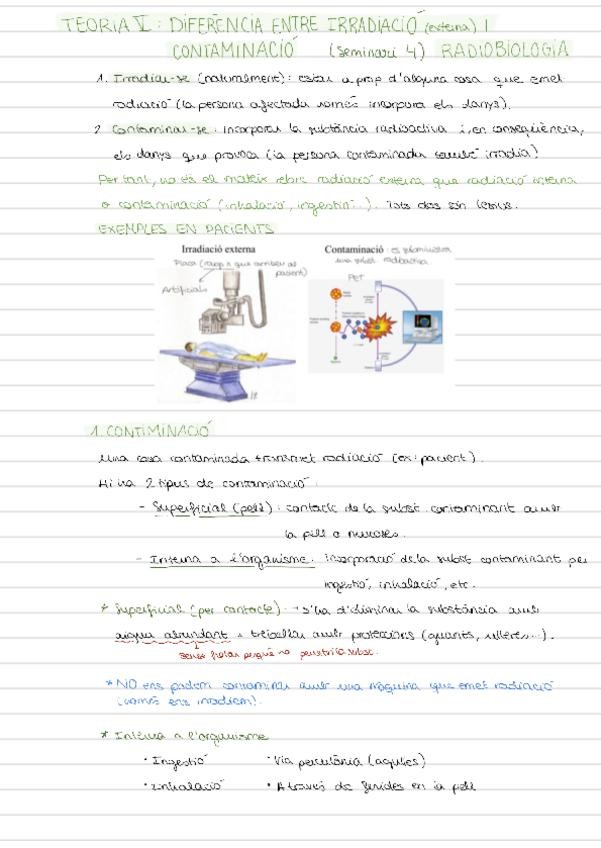 TEORIA V : DIFERÈNCIA ENTRE IRRADIACIÓ (externa) I
CONTAMINACIÓ (Seminari 4) RADIOBIOLOGIA
1. Irradiar-se (naturalment) : estar a prop d'alguna cosa que emet
radiació (la persona afectada només incorpora els danys).
2 Contaminar-se : incorporar la substància radioactiva i, en conseqüència,
els danys que provoca (la persona contaminada també irradia)
Per tant, no és el mateix rebre radiació externa que radiació interna
o contaminació (inhalació, ingestió...). Totes dos són lesius.
EXEMPLES EN PACIENTS
Irradiació externa
Placa (raigs X que arriben al
pacient)
Artificials
Contaminació : es subministra
una subst. radioactiva
PET
1. CONTIMINACIÓ
Una cosa contaminada transmet radiació (ex: pacient).
Hi ha 2 tipus de contaminació :
- Superficial (pell) : contacte de la subst. contaminant amb
la pell o mucoses.
- Interna a l'organisme. Incorporació de la subst contaminant per
ingestió, inhalació, etc.
* Superficial (per contacte). → s'ha d'eliminar la substància amb
aigua abundant + treballar amb proteccions (guants, ulleres...).
sense fretar perquè no penetri la subst.
* NO ens podem contaminar amb una màquina que emet radiació
(només ens irradiem).
* Interna a l'organisme
· Ingestió
· Via percutània (agulles)
· Inhalació
· A través de ferides en la pell